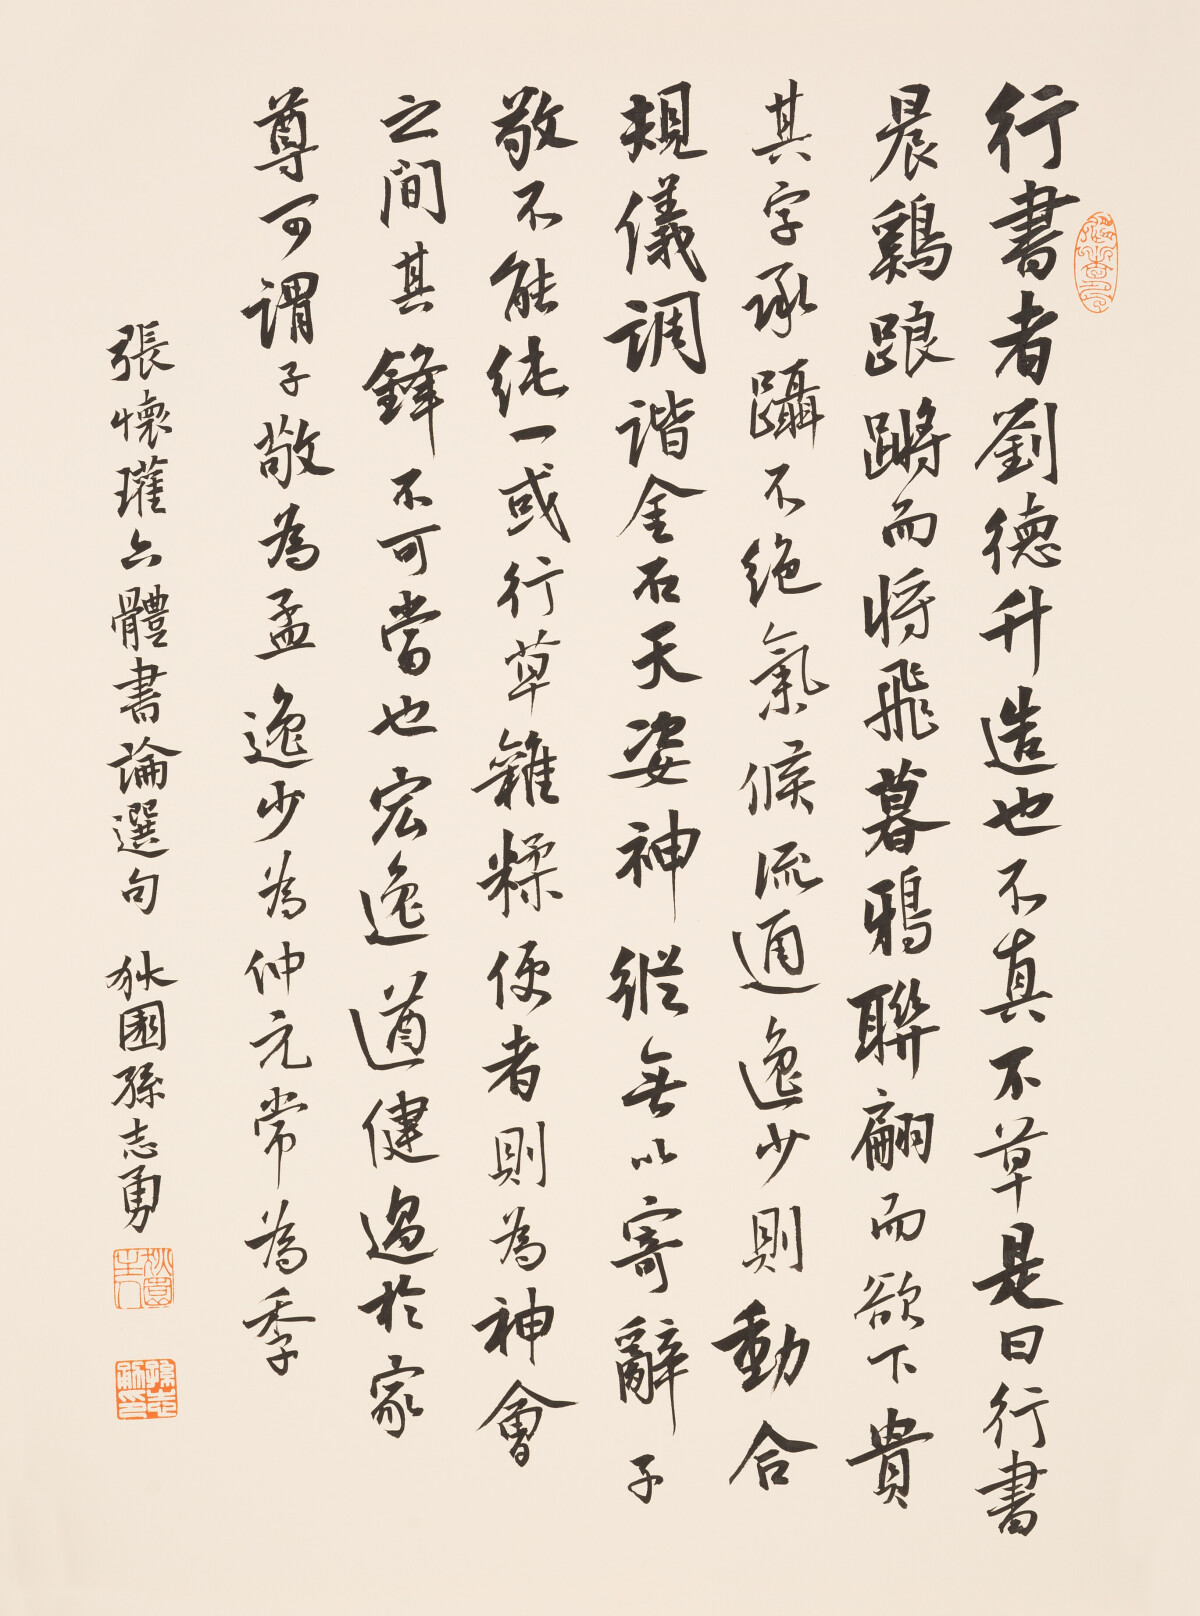 行書者劉德升造也不真不草是曰行書
晨鷄踉蹡而將飛暮鴉聯翩而欲下貴
其字承躡不絶氣候流通逸少則動合
規儀調諧金石天姿神縱無以寄辭子
敬不能純一或行草雜糅便者則為神會
之間其鋒不可當也宏逸遒健過於家
尊可謂子敬為孟逸少為仲元常為季
張懷瓘六體書論選句 狄園孫志勇